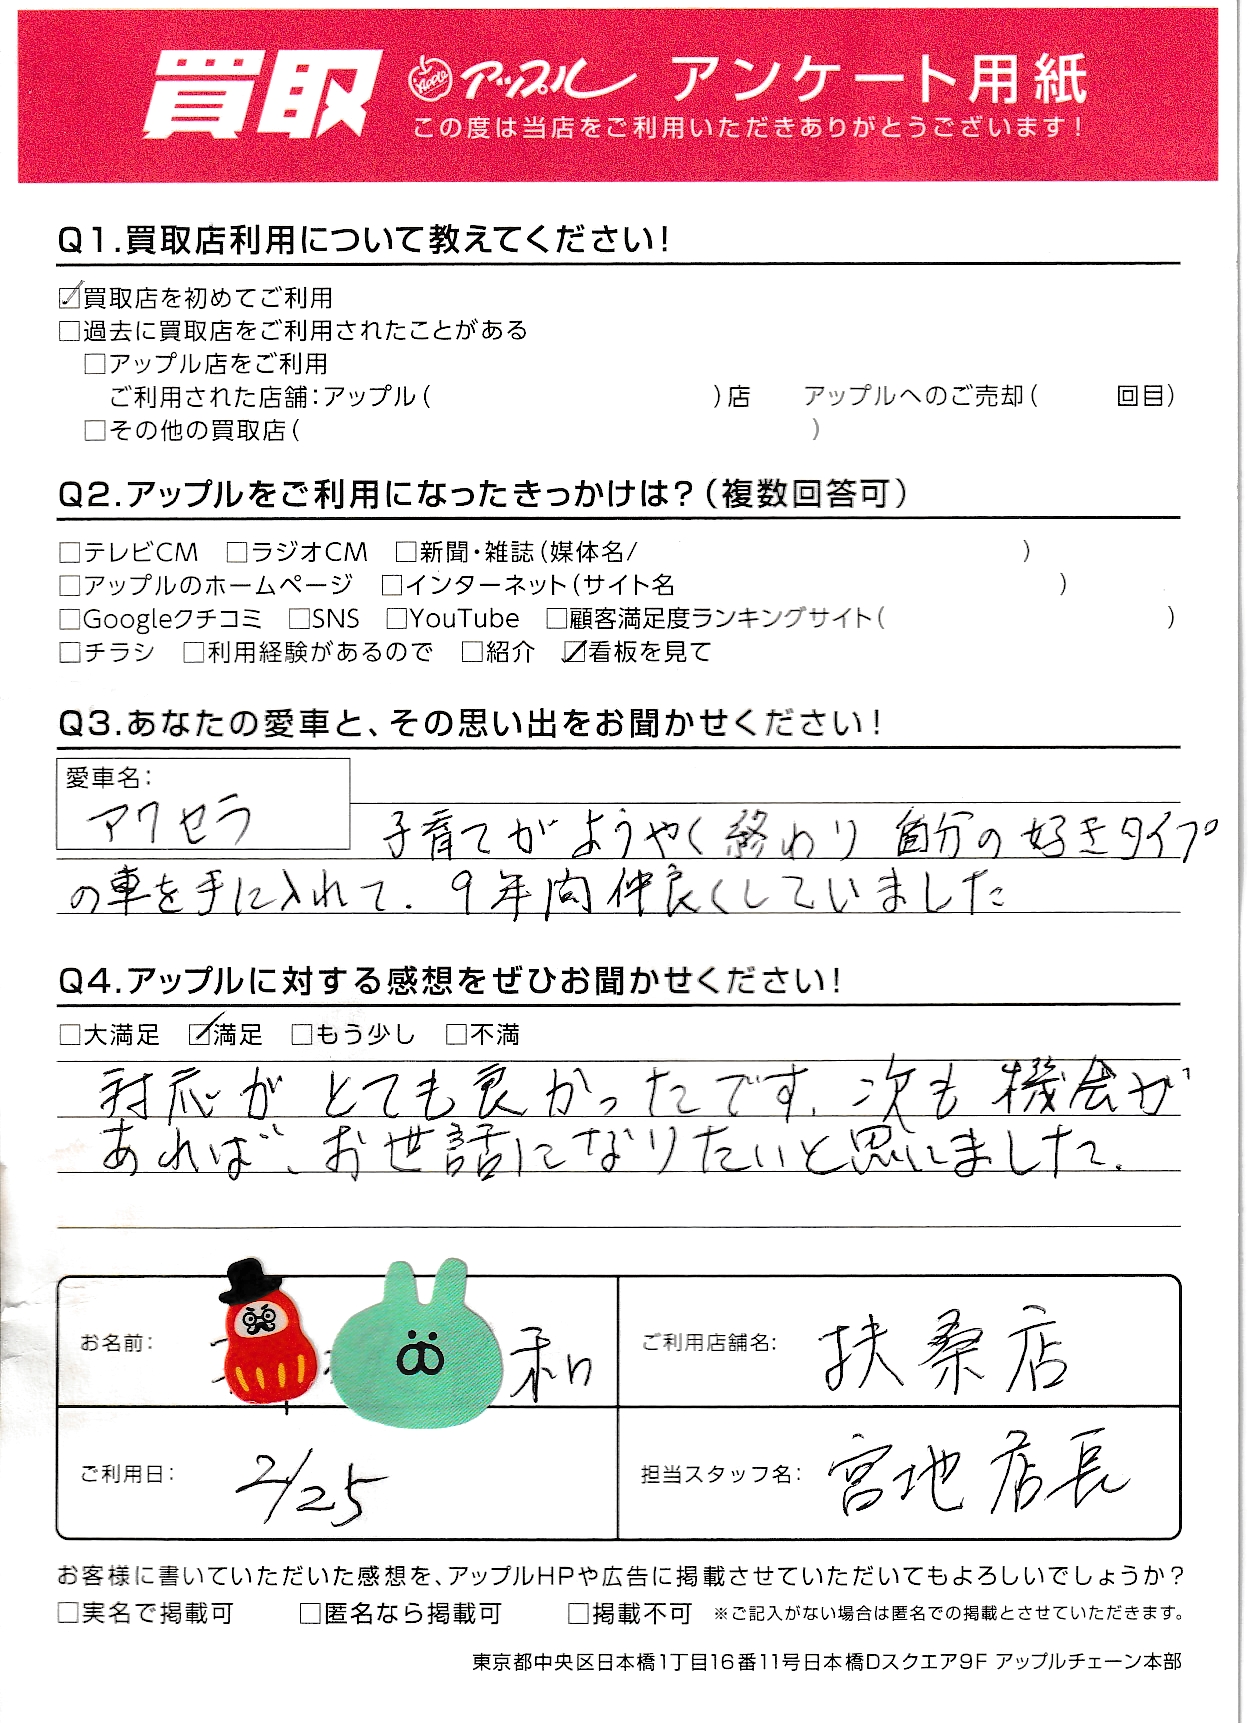 買取 Apple アップル アンケート用紙
この度は当店をご利用いただきありがとうございます!
Q1.買取店利用について教えてください!
☑買取店を初めてご利用
□過去に買取店をご利用されたことがある
□アップル店をご利用
ご利用された店舗:アップル( )店 アップルへのご売却( 回目)
□その他の買取店( )
Q2.アップルをご利用になったきっかけは?(複数回答可)
□テレビCM □ラジオCM □新聞・雑誌(媒体名/ )
□アップルのホームページ □インターネット(サイト名 )
□Googleクチコミ □SNS □YouTube □顧客満足度ランキングサイト( )
□チラシ □利用経験があるので □紹介 ☑看板を見て
Q3.あなたの愛車と、その思い出をお聞かせください!
愛車名:
アクセラ
子育てがようやく終わり自分の好きタイプ
の車を手に入れて.9年間仲良くしていました
Q4.アップルに対する感想をぜひお聞かせください!
□大満足 ☑満足 □もう少し □不満
対応がとても良かったです、次も機会が
あれば、お世話になりたいと思いました.
お名前: 和
ご利用店舗名: 扶桑店
ご利用日: 2/25
担当スタッフ名: 宮地店長
お客様に書いていただいた感想を、アップルHPや広告に掲載させていただいてもよろしいでしょうか?
□実名で掲載可 □匿名なら掲載可 □掲載不可 ※ご記入がない場合は匿名での掲載とさせていただきます。
東京都中央区日本橋1丁目16番11号日本橋Dスクエア9F アップルチェーン本部